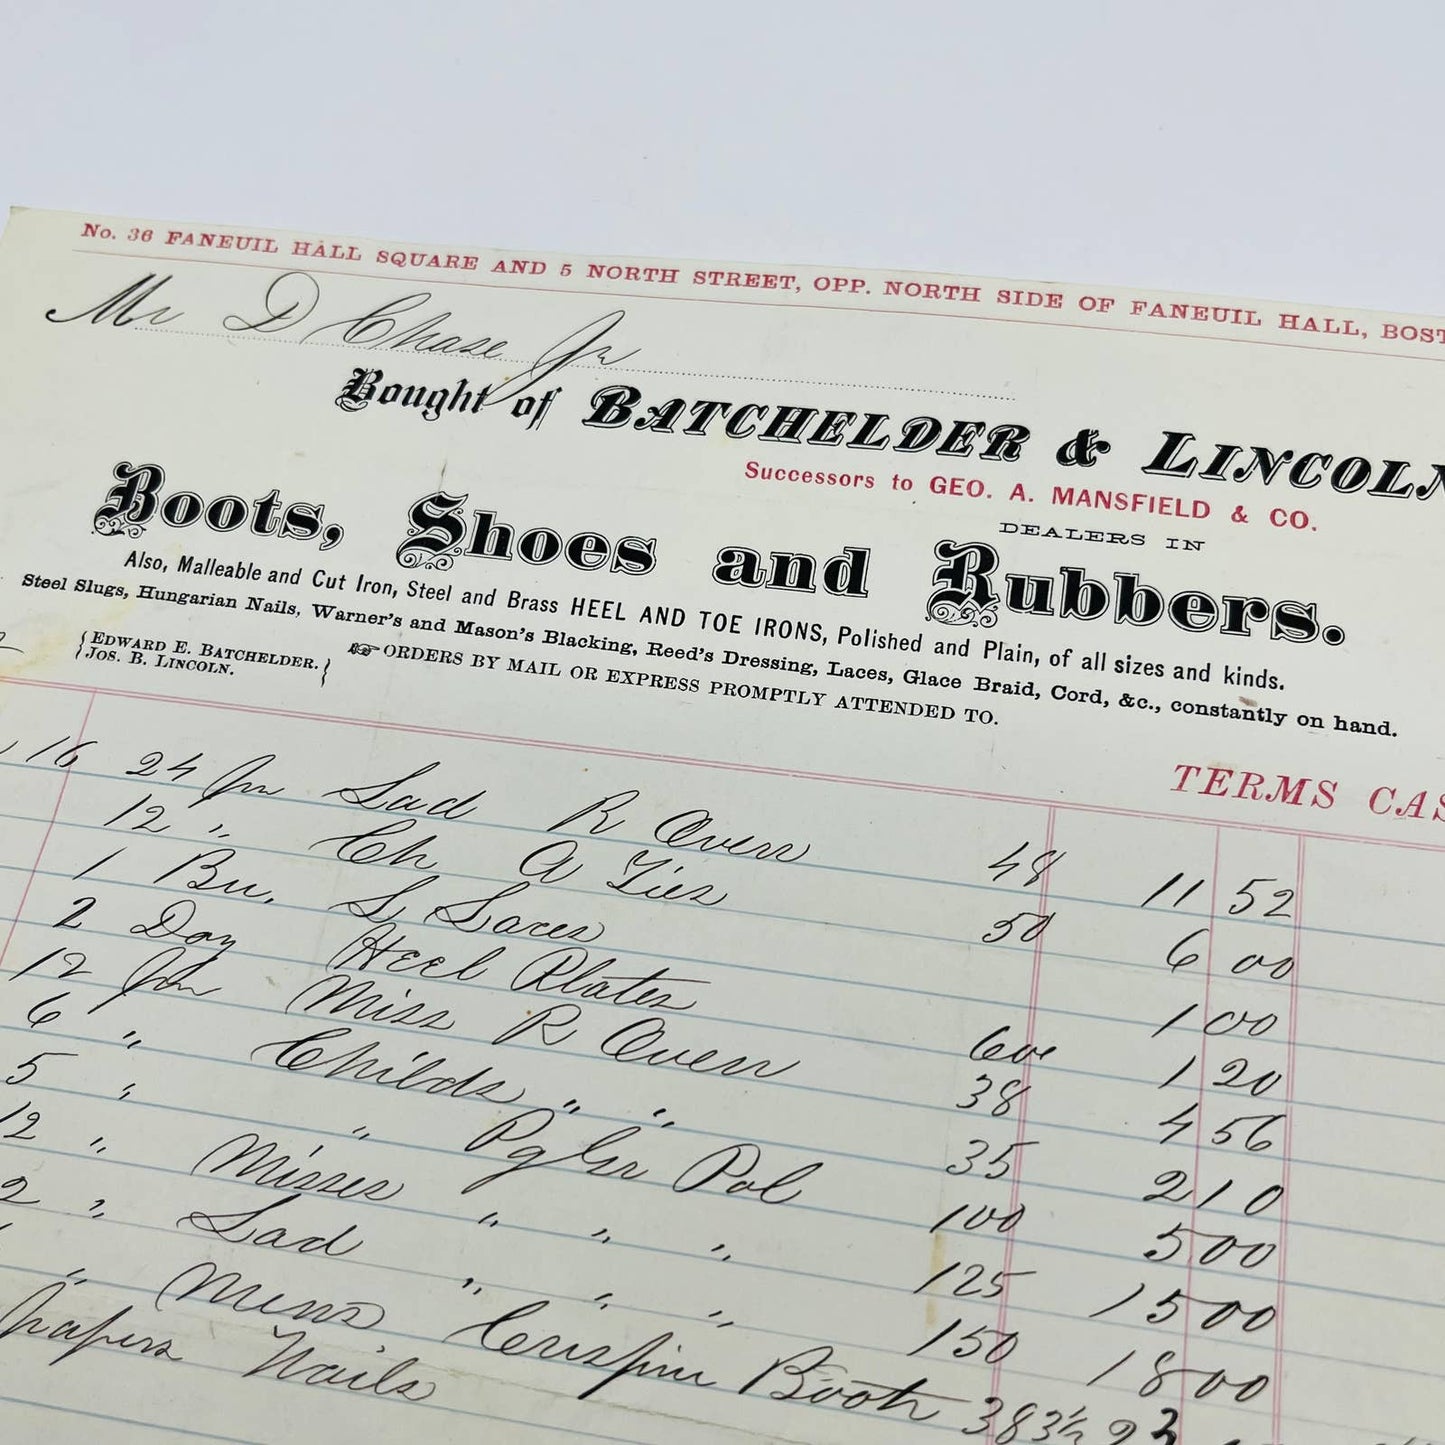 No. 36 FANEUIL HALL SQUARE AND 5 NORTH STREET, OPP. NORTH SIDE OF FANEUIL HALL, BOST
Mr D Chase Jr
Bought of BATCHELDER & LINCOLN
Successors to GEO. A. MANSFIELD & CO.
DEALERS IN
Boots, Shoes and Rubbers.
Also, Malleable and Cut Iron, Steel and Brass HEEL AND TOE IRONS, Polished and Plain, of all sizes and kinds.
Steel Slugs, Hungarian Nails, Warner's and Mason's Blacking, Reed's Dressing, Laces, Glace Braid, Cord, &c., constantly on hand.
{EDWARD E. BATCHELDER.}
{JOS. B. LINCOLN.}
☞ ORDERS BY MAIL OR EXPRESS PROMPTLY ATTENDED TO.
TERMS CAS
16 24 Lad R Over 48 11 52
12 " Ch A Ties 50 6 00
1 L Laces 1 00
2 Heel Plates 60 1 20
12 Miss R Over 38 4 56
6 " Childs " " 35 2 10
5 " " Pol 100 5 00
12 " Misses " " " 125 15 00
2 " Lad " " " 150 18 00
" Mens Boots 38 3
Papers Nails